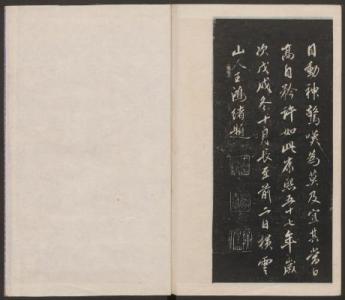 目動神驚嘆為莫及宜其當日
高自矜許如此康熙五十七年歲
次戊戌冬十月長至前二日橫雲
山人王鴻緒題